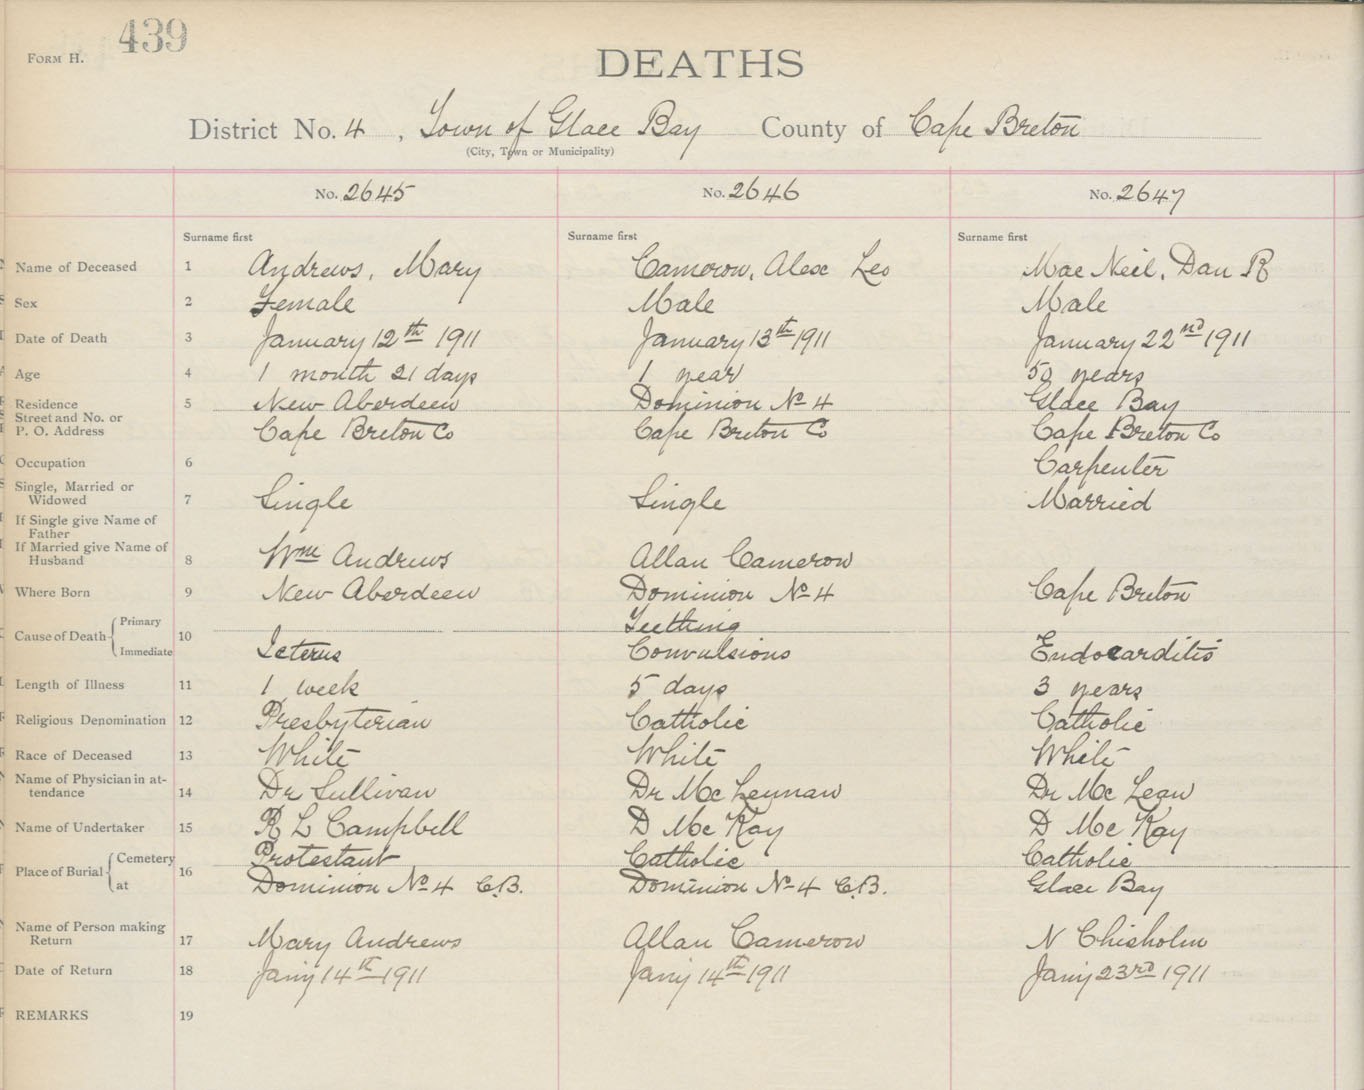 439
FORM H.
DEATHS
District No. 4, Town of Glace Bay County of Cape Breton
(City, Town or Municipality)
No. 2645 No. 2646 No. 2647
Surname first Surname first Surname first
Name of Deceased 1 Andrews, Mary Cameron, Alex Leo Mac Neil, Dan R
Sex 2 Female Male Male
Date of Death 3 January 12th 1911 January 13th 1911 January 22nd 1911
Age 4 1 month 21 days 1 year 50 years
Residence 5 New Aberdeen Dominion No 4 Glace Bay
Street and No. or
P. O. Address Cape Breton Co Cape Breton Co Cape Breton Co
Occupation 6 Carpenter
Single, Married or
Widowed 7 Single Single Married
If Single give Name of
Father
If Married give Name of
Husband 8 Wm Andrews Allan Cameron
Where Born 9 New Aberdeen Dominion No 4 Cape Breton
Primary Teething
Cause of Death 10
Immediate Icterus Convulsions Endocarditis
Length of Illness 11 1 week 5 days 3 years
Religious Denomination 12 Presbyterian Catholic Catholic
Race of Deceased 13 White White White
Name of Physician in at-
tendance 14 Dr Sullivan Dr Mc Lennan Dr Mc Lean
Name of Undertaker 15 R L Campbell D Mc Kay D Mc Kay
Cemetery Protestant Catholic Catholic
Place of Burial 16
at Dominion No 4 C.B. Dominion No 4 C.B. Glace Bay
Name of Person making
Return 17 Mary Andrews Allan Cameron N Chisholm
Date of Return 18 Jany 14th 1911 Jany 14th 1911 Jany 23rd 1911
REMARKS 19